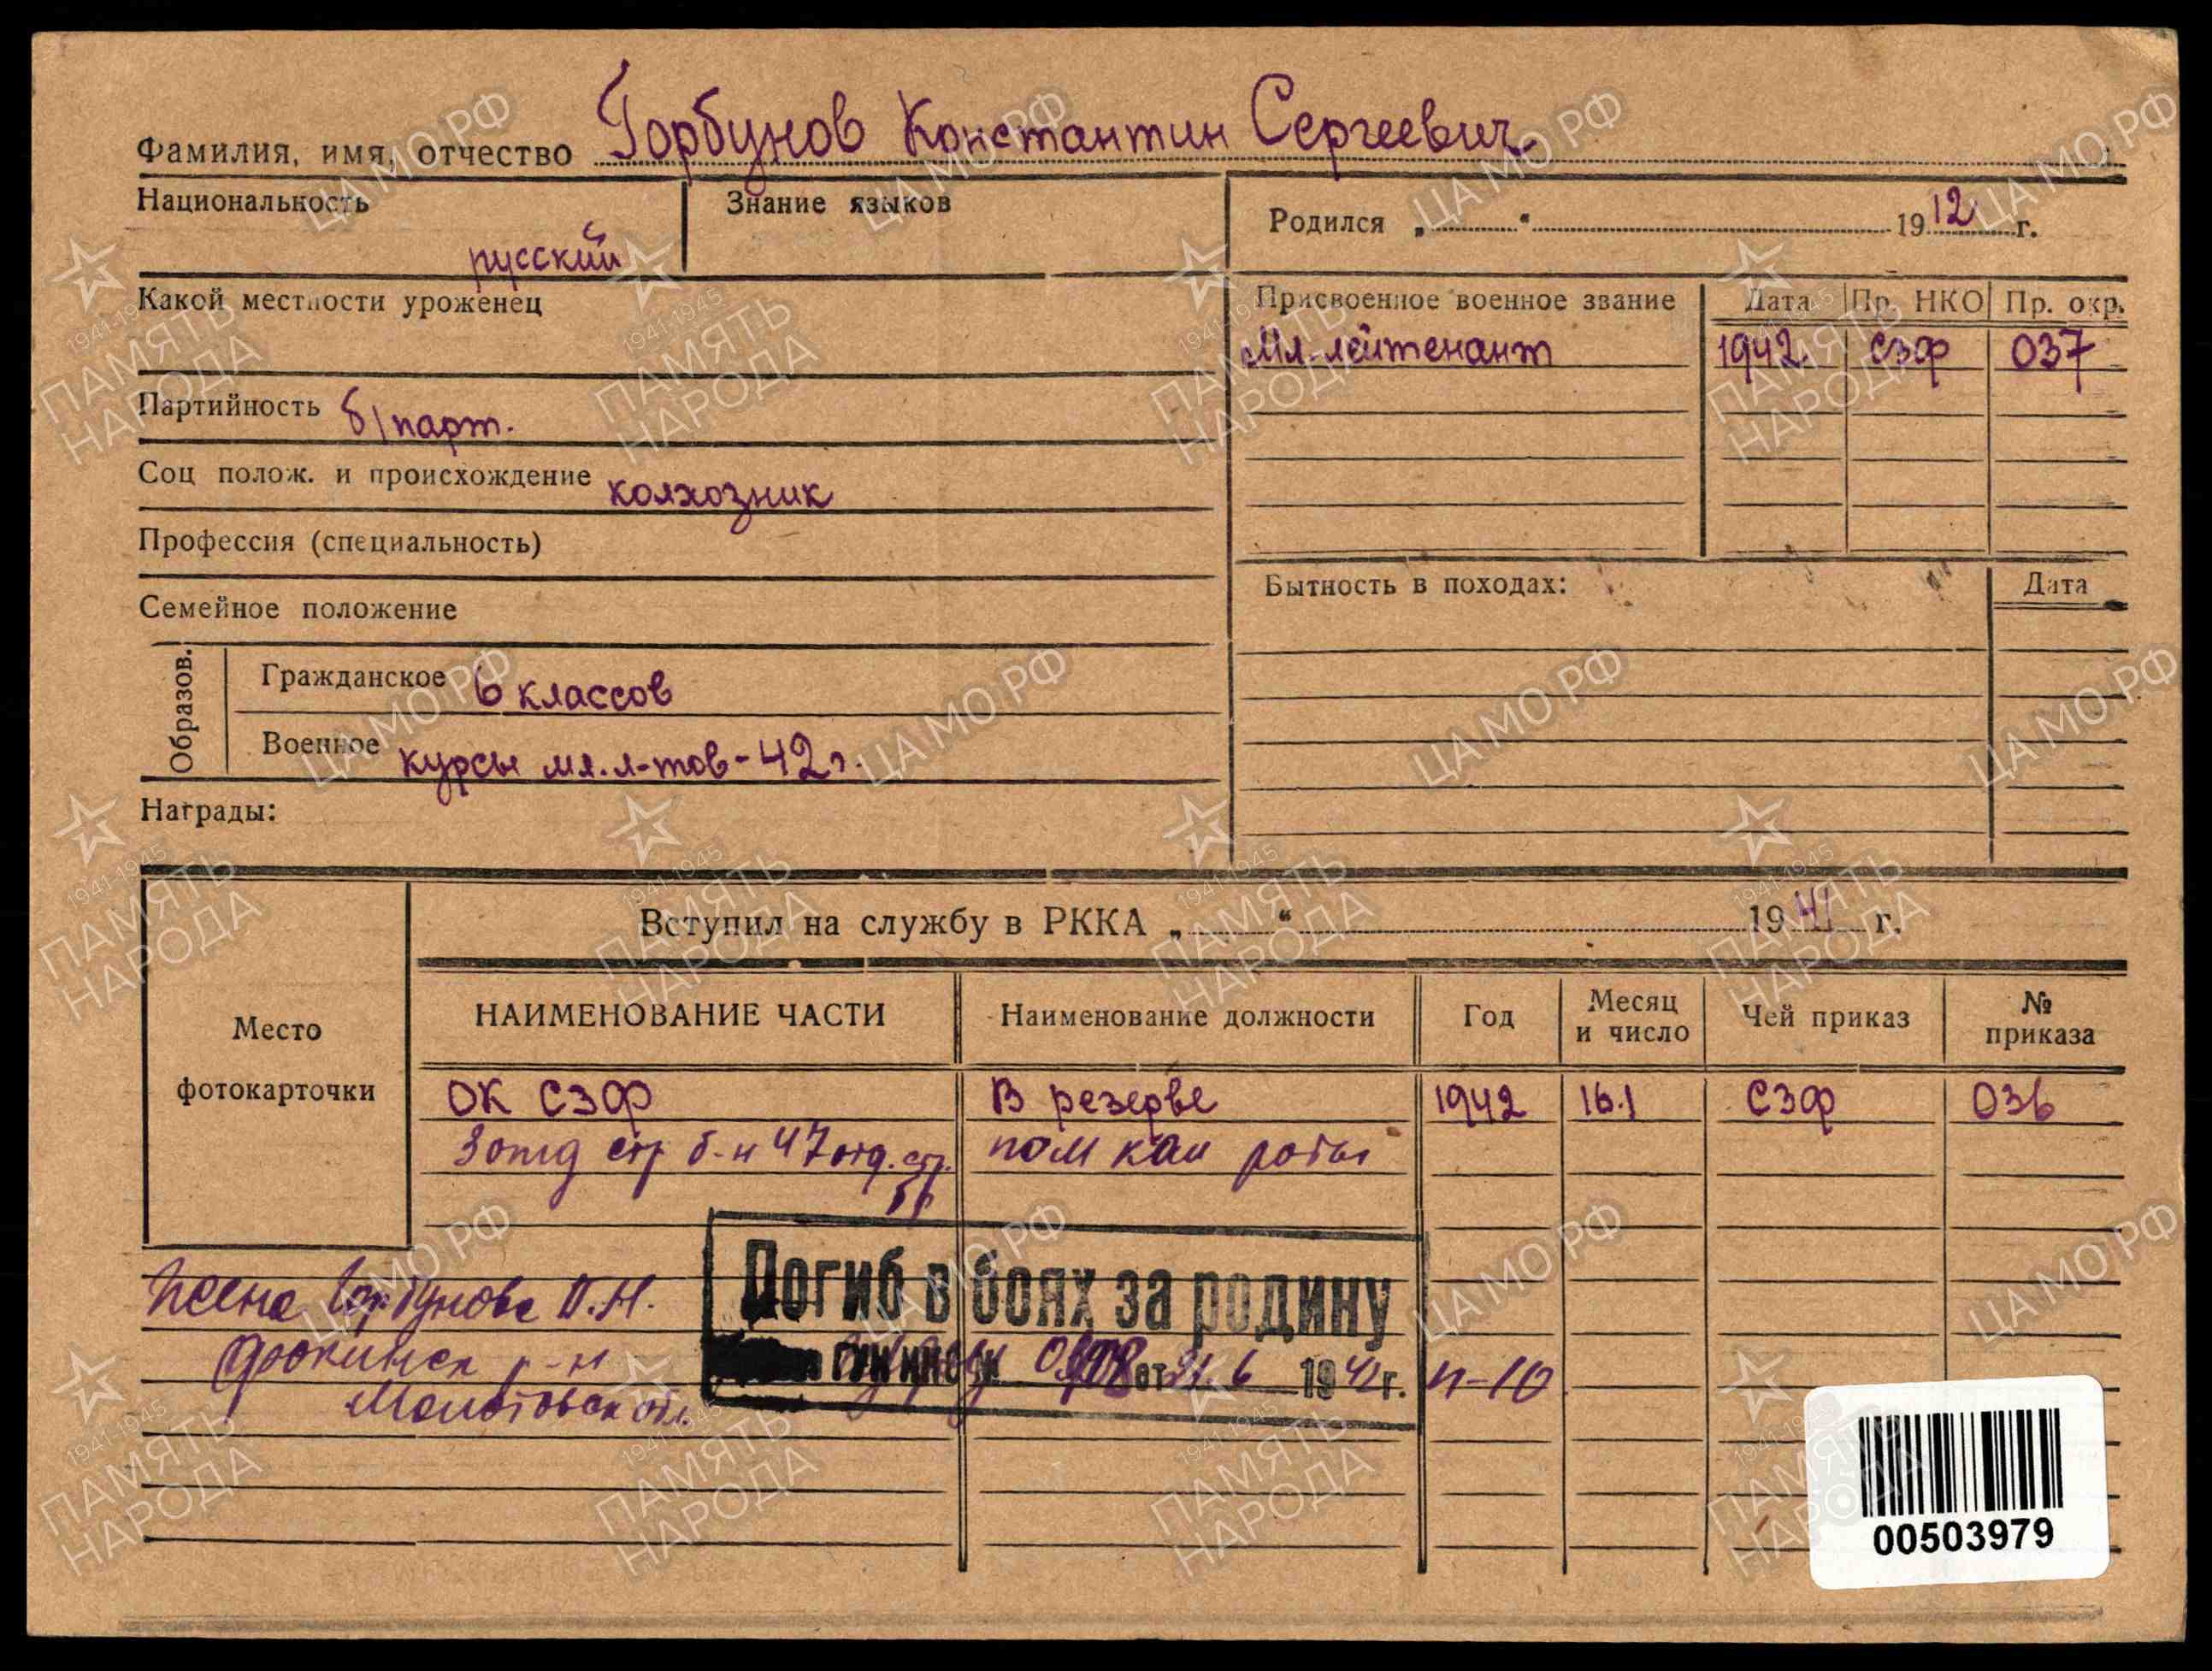 Фамилия, имя, отчество Горбунов Константин Сергеевич.
Национальность русский
Знание языков
Родился „ “ 1912 г.
Какой местности уроженец
Присвоенное военное звание Дата Пр. НКО Пр. окр.
Мл. лейтенант 1942 СЗФ 037
Партийность б/парт.
Соц полож. и происхождение колхозник
Профессия (специальность)
Бытность в походах: Дата
Семейное положение
Образов.
Гражданское 6 классов
Военное курсы мл. л-тов-42г.
Награды:
Место
фотокарточки
Вступил на службу в РККА „ “ 1941 г.
НАИМЕНОВАНИЕ ЧАСТИ Наименование должности Год Месяц и число Чей приказ № приказа
ОК СЗФ В резерве 1942 16.1 СЗФ 036
3 отд стр б-н 47 отд. стр. бр пом ком роты
Погиб в боях за родину
ГУК НКО от 21.6 1942 г. п-10
Жена Горбунова
р-н
Молотовск обл.
00503979
ЦА МО РФ
1941-1945
ПАМЯТЬ
НАРОДА